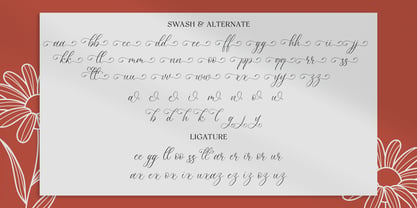 SWASH & ALTERNATE
aa bb cc dd ee ff gg hh ii jj
kk ll mm nn oo pp qq rr ss
tt uu vv ww xx yy zz
a e i m n o u
b d h k l g j y
LIGATURE
ee gg ll oo ss tt ar er ir or ur
ax ex ox ix uxaz ez iz oz uz